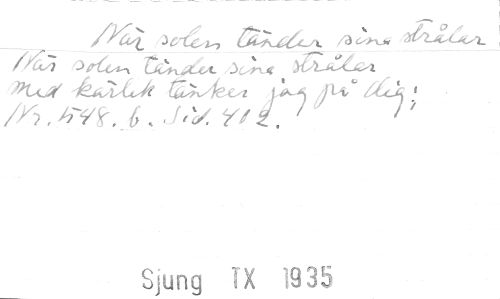 När solen tänder sina strålar
När solen tänder sina strålar
med kärlek tänker jag på dig;
Nr. 548. b. Sid. 402.
Sjung TX 1935